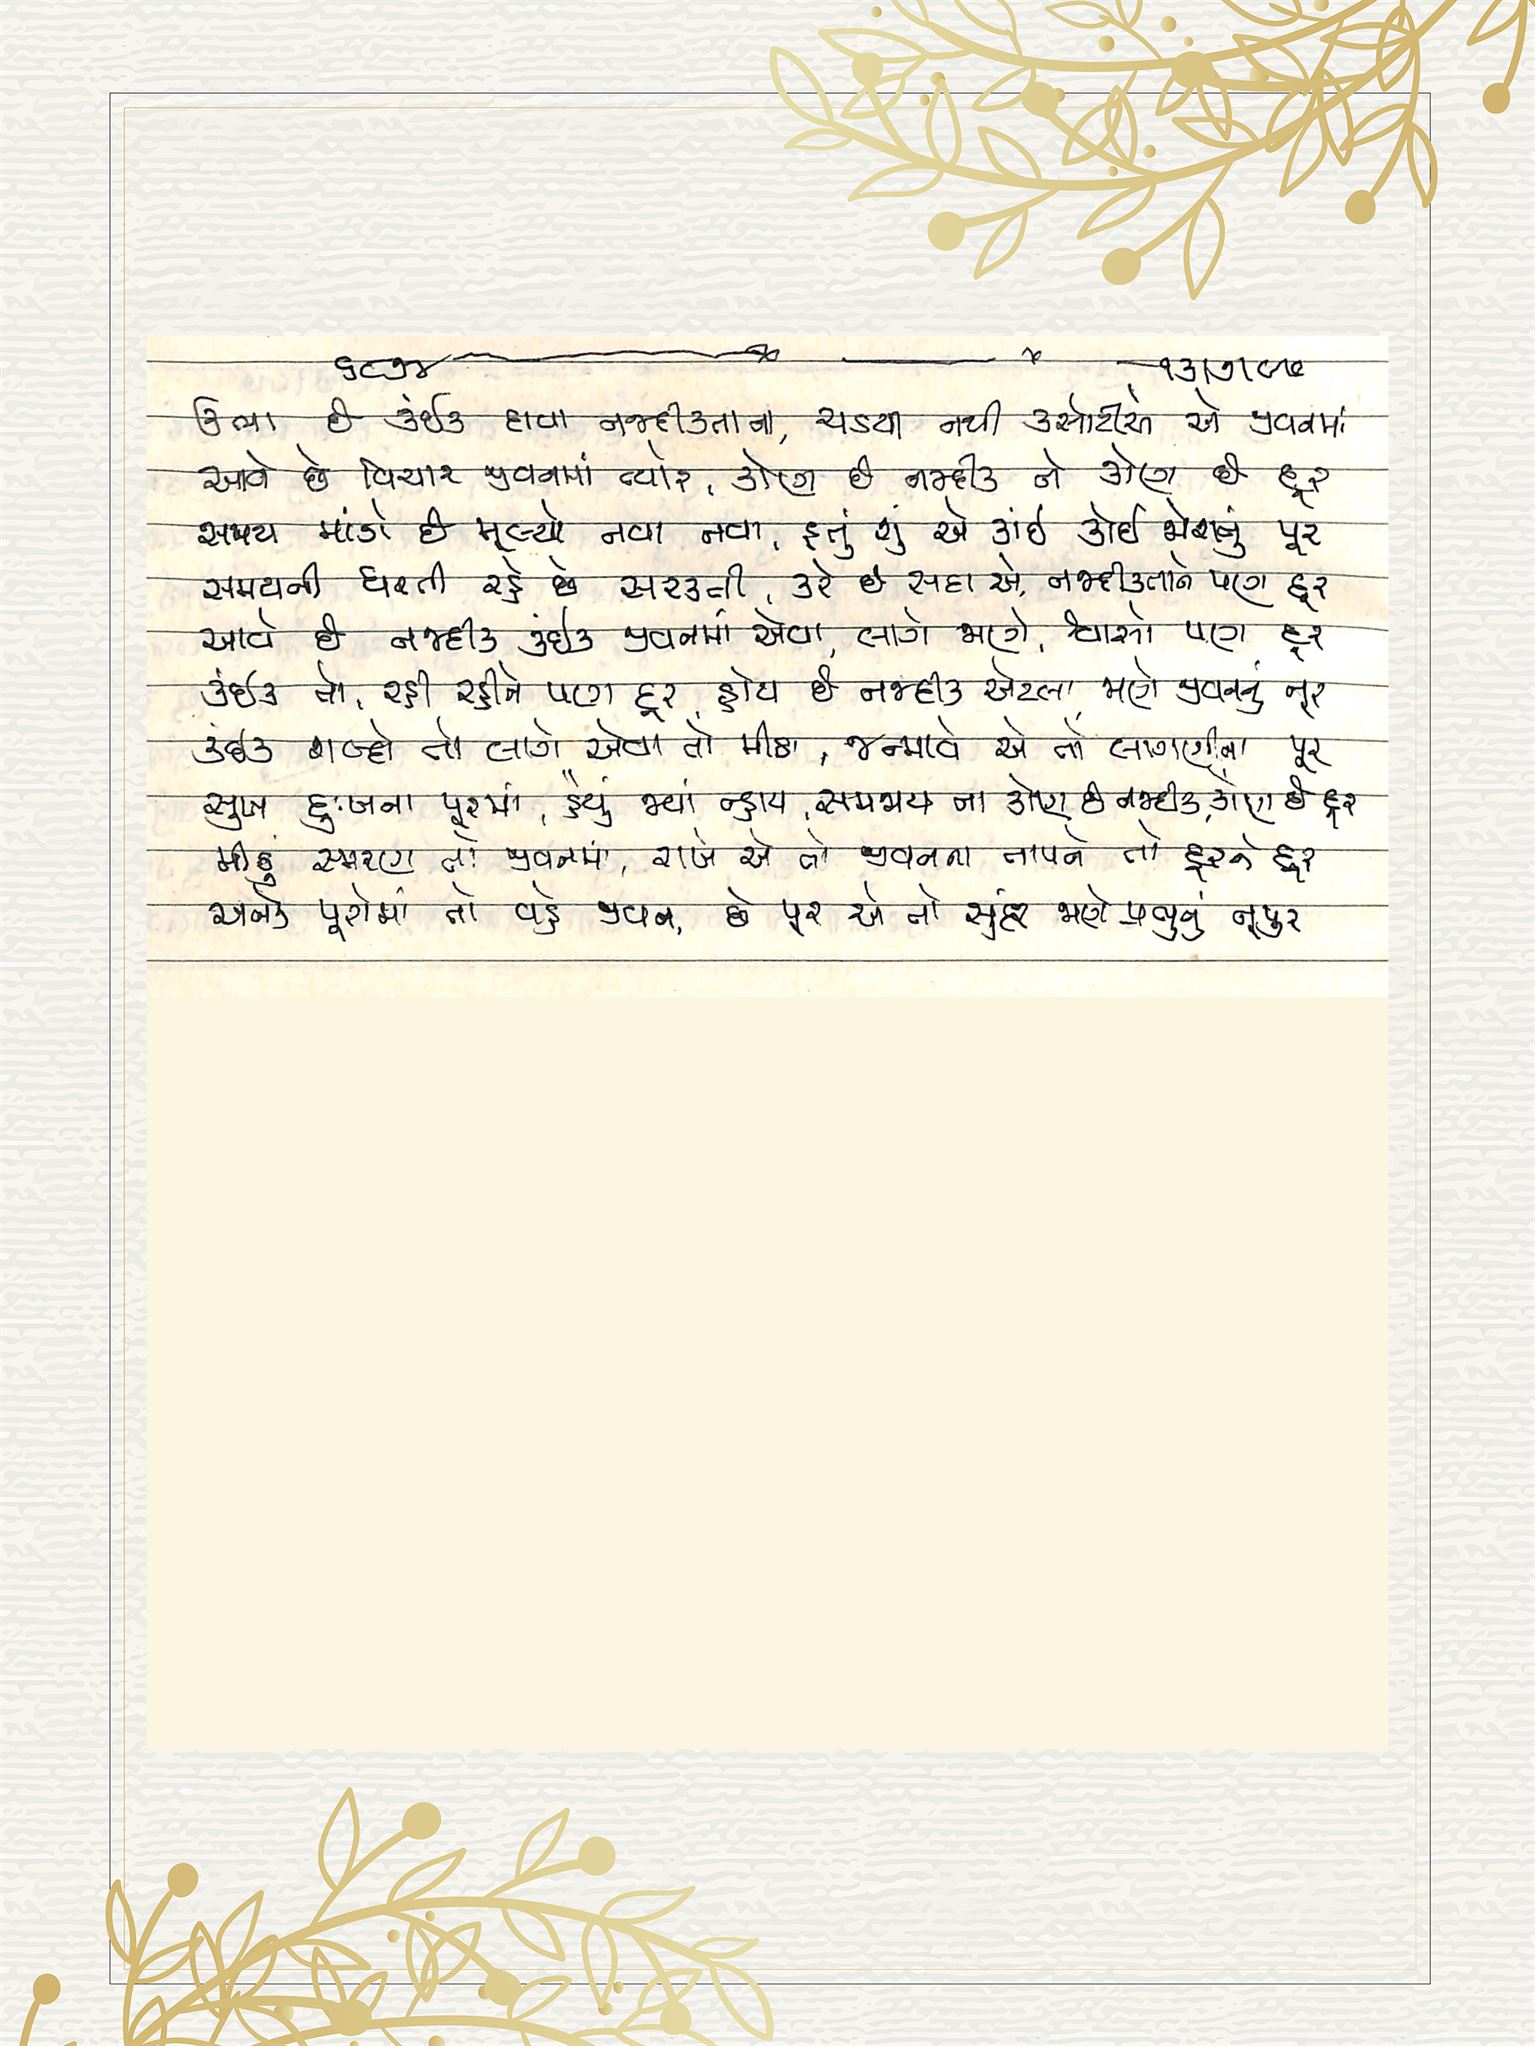 ૬૮૭૪ ૧૩/૭/૯૭
ઊભા છે કંઈક દાવા નજદીકતાના, ચડયા નથી કસોટીએ એ જીવનમાં
આવે છે વિચાર જીવનમાં ત્યારે, કોણ છે નજદીક ને કોણ છે દૂર
સમય માંડે છે મૂલ્યો નવા નવા, હતું શું એ કાંઈ કોઈ જોશનું પૂર
સમયની ધરતી રહે છે સરકતી, કરે છે સદા એ, નજદીકતાને પણ દૂર
આવે છે નજદીક કંઈક જીવનમાં એવા, લાગે જાણે, શ્વાસો પણ દૂર
કંઈક તો, રહી રહીને પણ દૂર, હોય છે નજદીક એટલા, જાણે જીવનનું નૂર
કંઈક શબ્દો તો લાગે એવા તો મીઠા, જન્માવે એ તો લાગણીના પૂર
સુખ દુઃખના પૂરમાં, હૈયું જ્યાં ન્હાય, સમજાય ના કોણ છે નજદીક, કોણ છે દૂર
મીઠું સ્મરણ તો જીવનમાં, રાખે એ તો જીવનના તાપને તો દૂરને દૂર
અનેક પૂરોમાં તો વહે જીવન, છે પૂર એ તો સુંદર જાણે પ્રભુનું નૂપુર